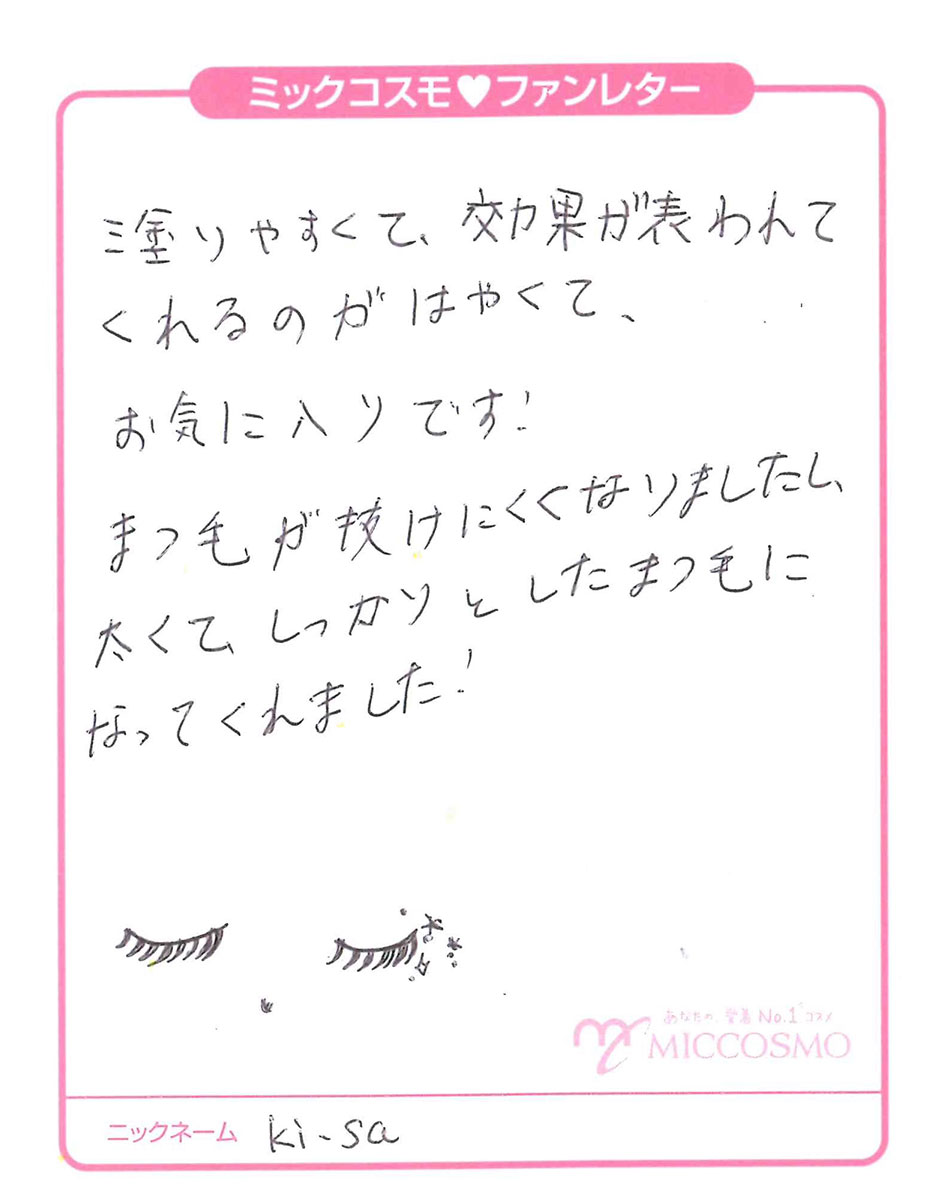 ミックコスモ♥ファンレター
塗りやすくて、効果が表われて
くれるのがはやくて、
お気に入りです!
まつ毛が抜けにくくなりましたし、
太くて、しっかりとしたまつ毛に
なってくれました!
あなたの、愛着No.1コスメ
MICCOSMO
ニックネーム ki-sa